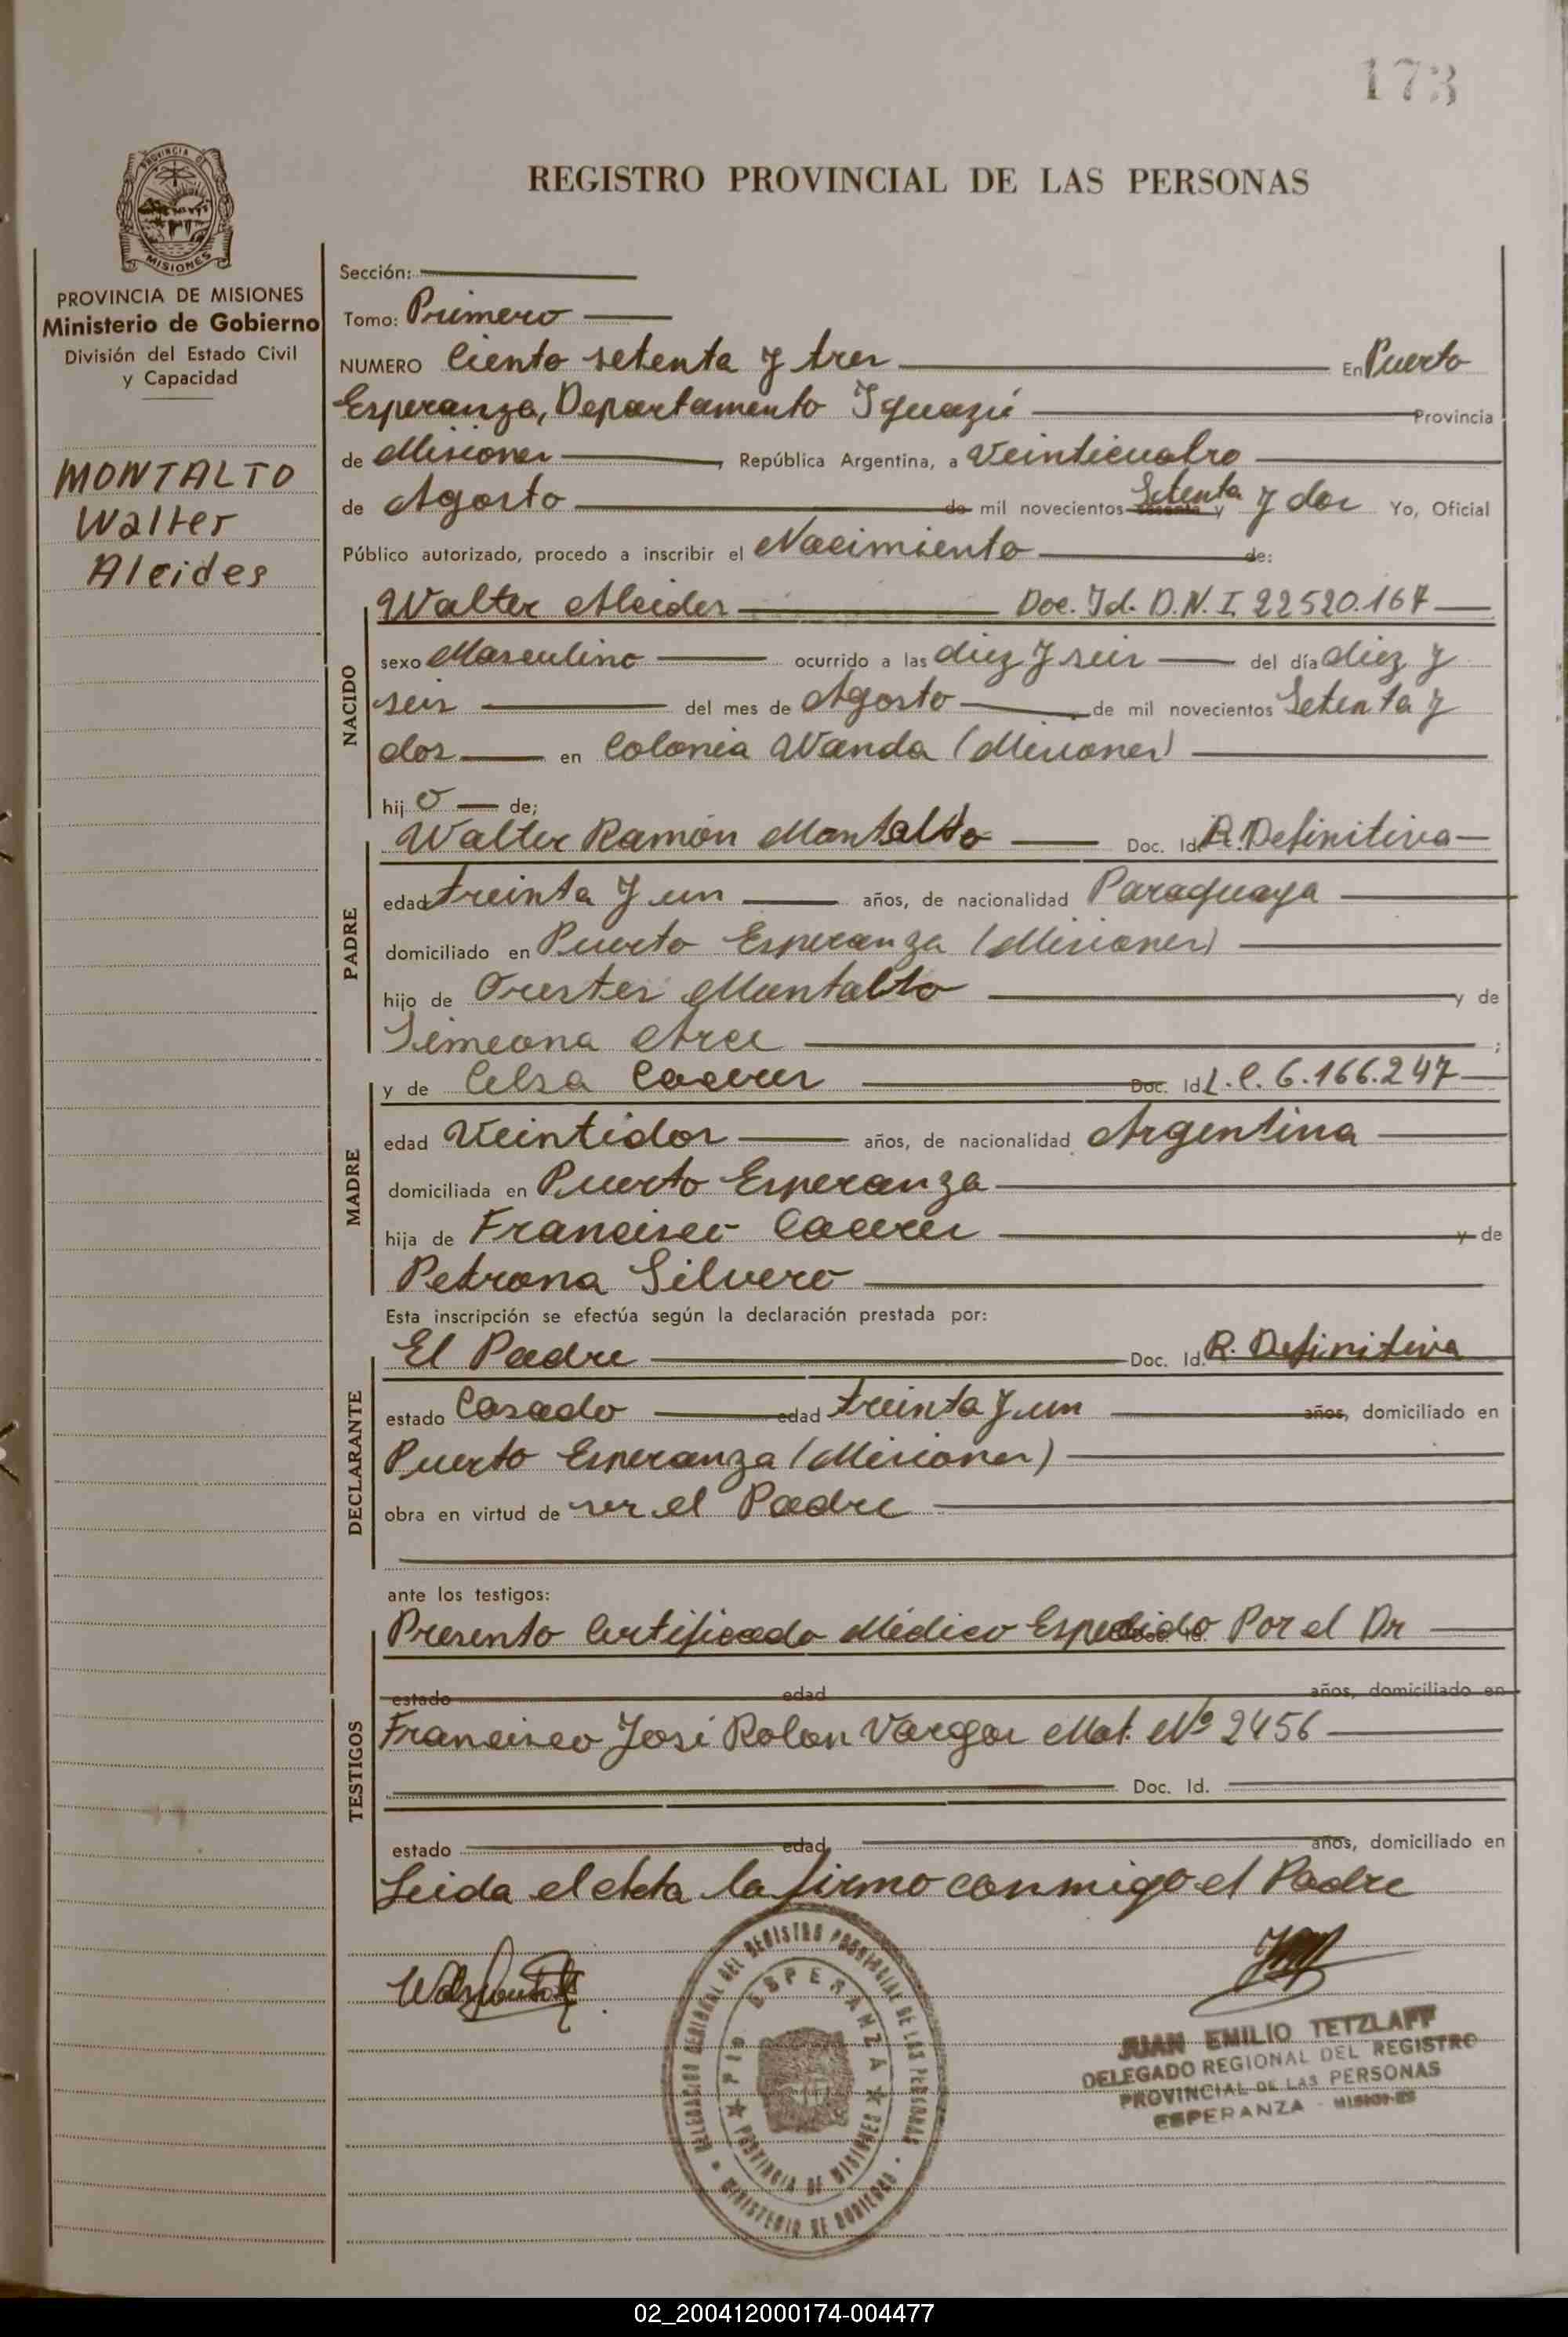 173
PROVINCIA DE
MISIONES
REGISTRO PROVINCIAL DE LAS PERSONAS
PROVINCIA DE MISIONES
Ministerio de Gobierno
División del Estado Civil
y Capacidad
MONTALTO
Walter
Alcides
Sección:
Tomo: Primero
NUMERO Ciento setenta y tres En Puerto
Esperanza, Departamento Iguazú Provincia
de Misiones, República Argentina, a Veinticuatro
de Agosto de mil novecientos Setenta y dos Yo, Oficial
Público autorizado, procedo a inscribir el Nacimiento de:
NACIDO
Walter Alcides Doc. Id. D.N.I. 22520.167
sexo Masculino ocurrido a las diez y seis del día diez y
seis del mes de Agosto de mil novecientos Setenta y
dos en Colonia Wanda (Misiones)
hijo de;
PADRE
Walter Ramón Montalto Doc. Id. R. Definitiva
edad treinta y un años, de nacionalidad Paraguaya
domiciliado en Puerto Esperanza (Misiones)
hijo de Orestes Montalto y de
Simeona Arce ;
MADRE
y de Celsa Caceres Doc. Id L.C. 6.166.247
edad Veintidos años, de nacionalidad Argentina
domiciliada en Puerto Esperanza
hija de Francisco Caceres y de
Petrona Silvero
Esta inscripción se efectúa según la declaración prestada por:
DECLARANTE
El Padre Doc. Id. R. Definitiva
estado Casado edad treinta y un años, domiciliado en
Puerto Esperanza (Misiones)
obra en virtud de ser el Padre
ante los testigos:
TESTIGOS
Presento Certificado Médico Espedido Por el Dr
estado edad años, domiciliado en
Francisco José Rolon Vargas Mat. Nº 2456
Doc. Id.
estado edad años, domiciliado en
Leida el Acta la firmo conmigo el Padre
DELEGACION REGIONAL DEL REGISTRO PROVINCIAL DE LAS PERSONAS
MINISTERIO DE GOBIERNO
PTO ESPERANZA
PROVINCIA DE MISIONES
JUAN EMILIO TETZLAFF
DELEGADO REGIONAL DEL REGISTRO
PROVINCIAL DE LAS PERSONAS
ESPERANZA - MISIONES
02_200412000174-004477